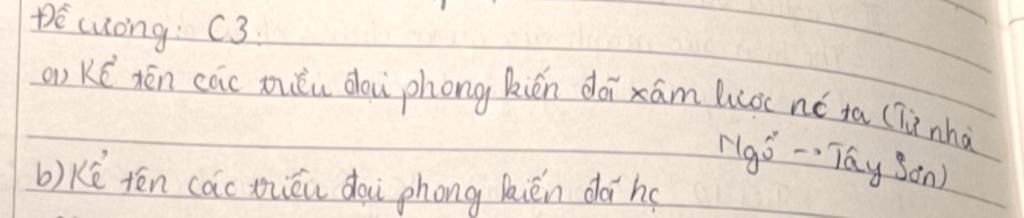 Đề cương: C3.
a) Kể tên các triều đại phong kiến đã xâm lược nc ta (Từ nhà
Ngô → Tây Sơn)
b) Kể tên các triều đại phong kiến đã hc